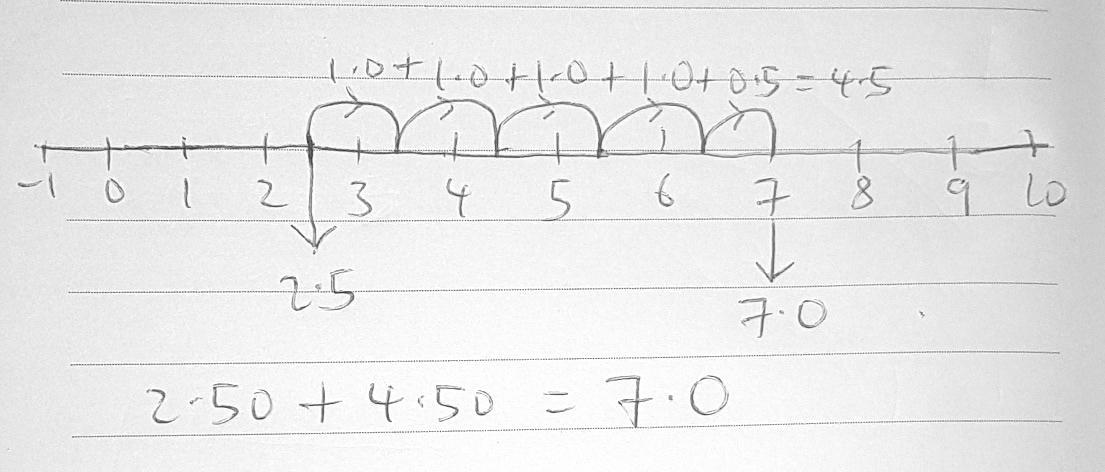 1.0+1.0+1.0+1.0+0.5=4.5
-1 0 1 2 3 4 5 6 7 8 9 10
2.5
7.0
2.50 + 4.50 = 7.0